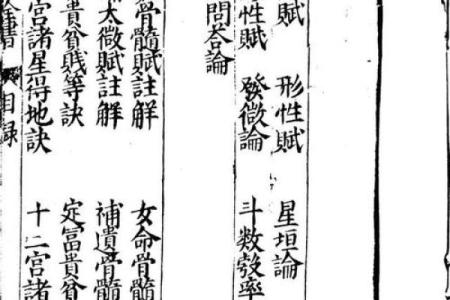 賦 形性賦 星垣論
性賦 發微論 斗数彀率
問答論
骨髓賦註解 女命骨髓
太微賦註解 補遺骨髓
貴貧賤等訣 定冨貴貧
宮諸星得地訣 十二宮諸
書 目録